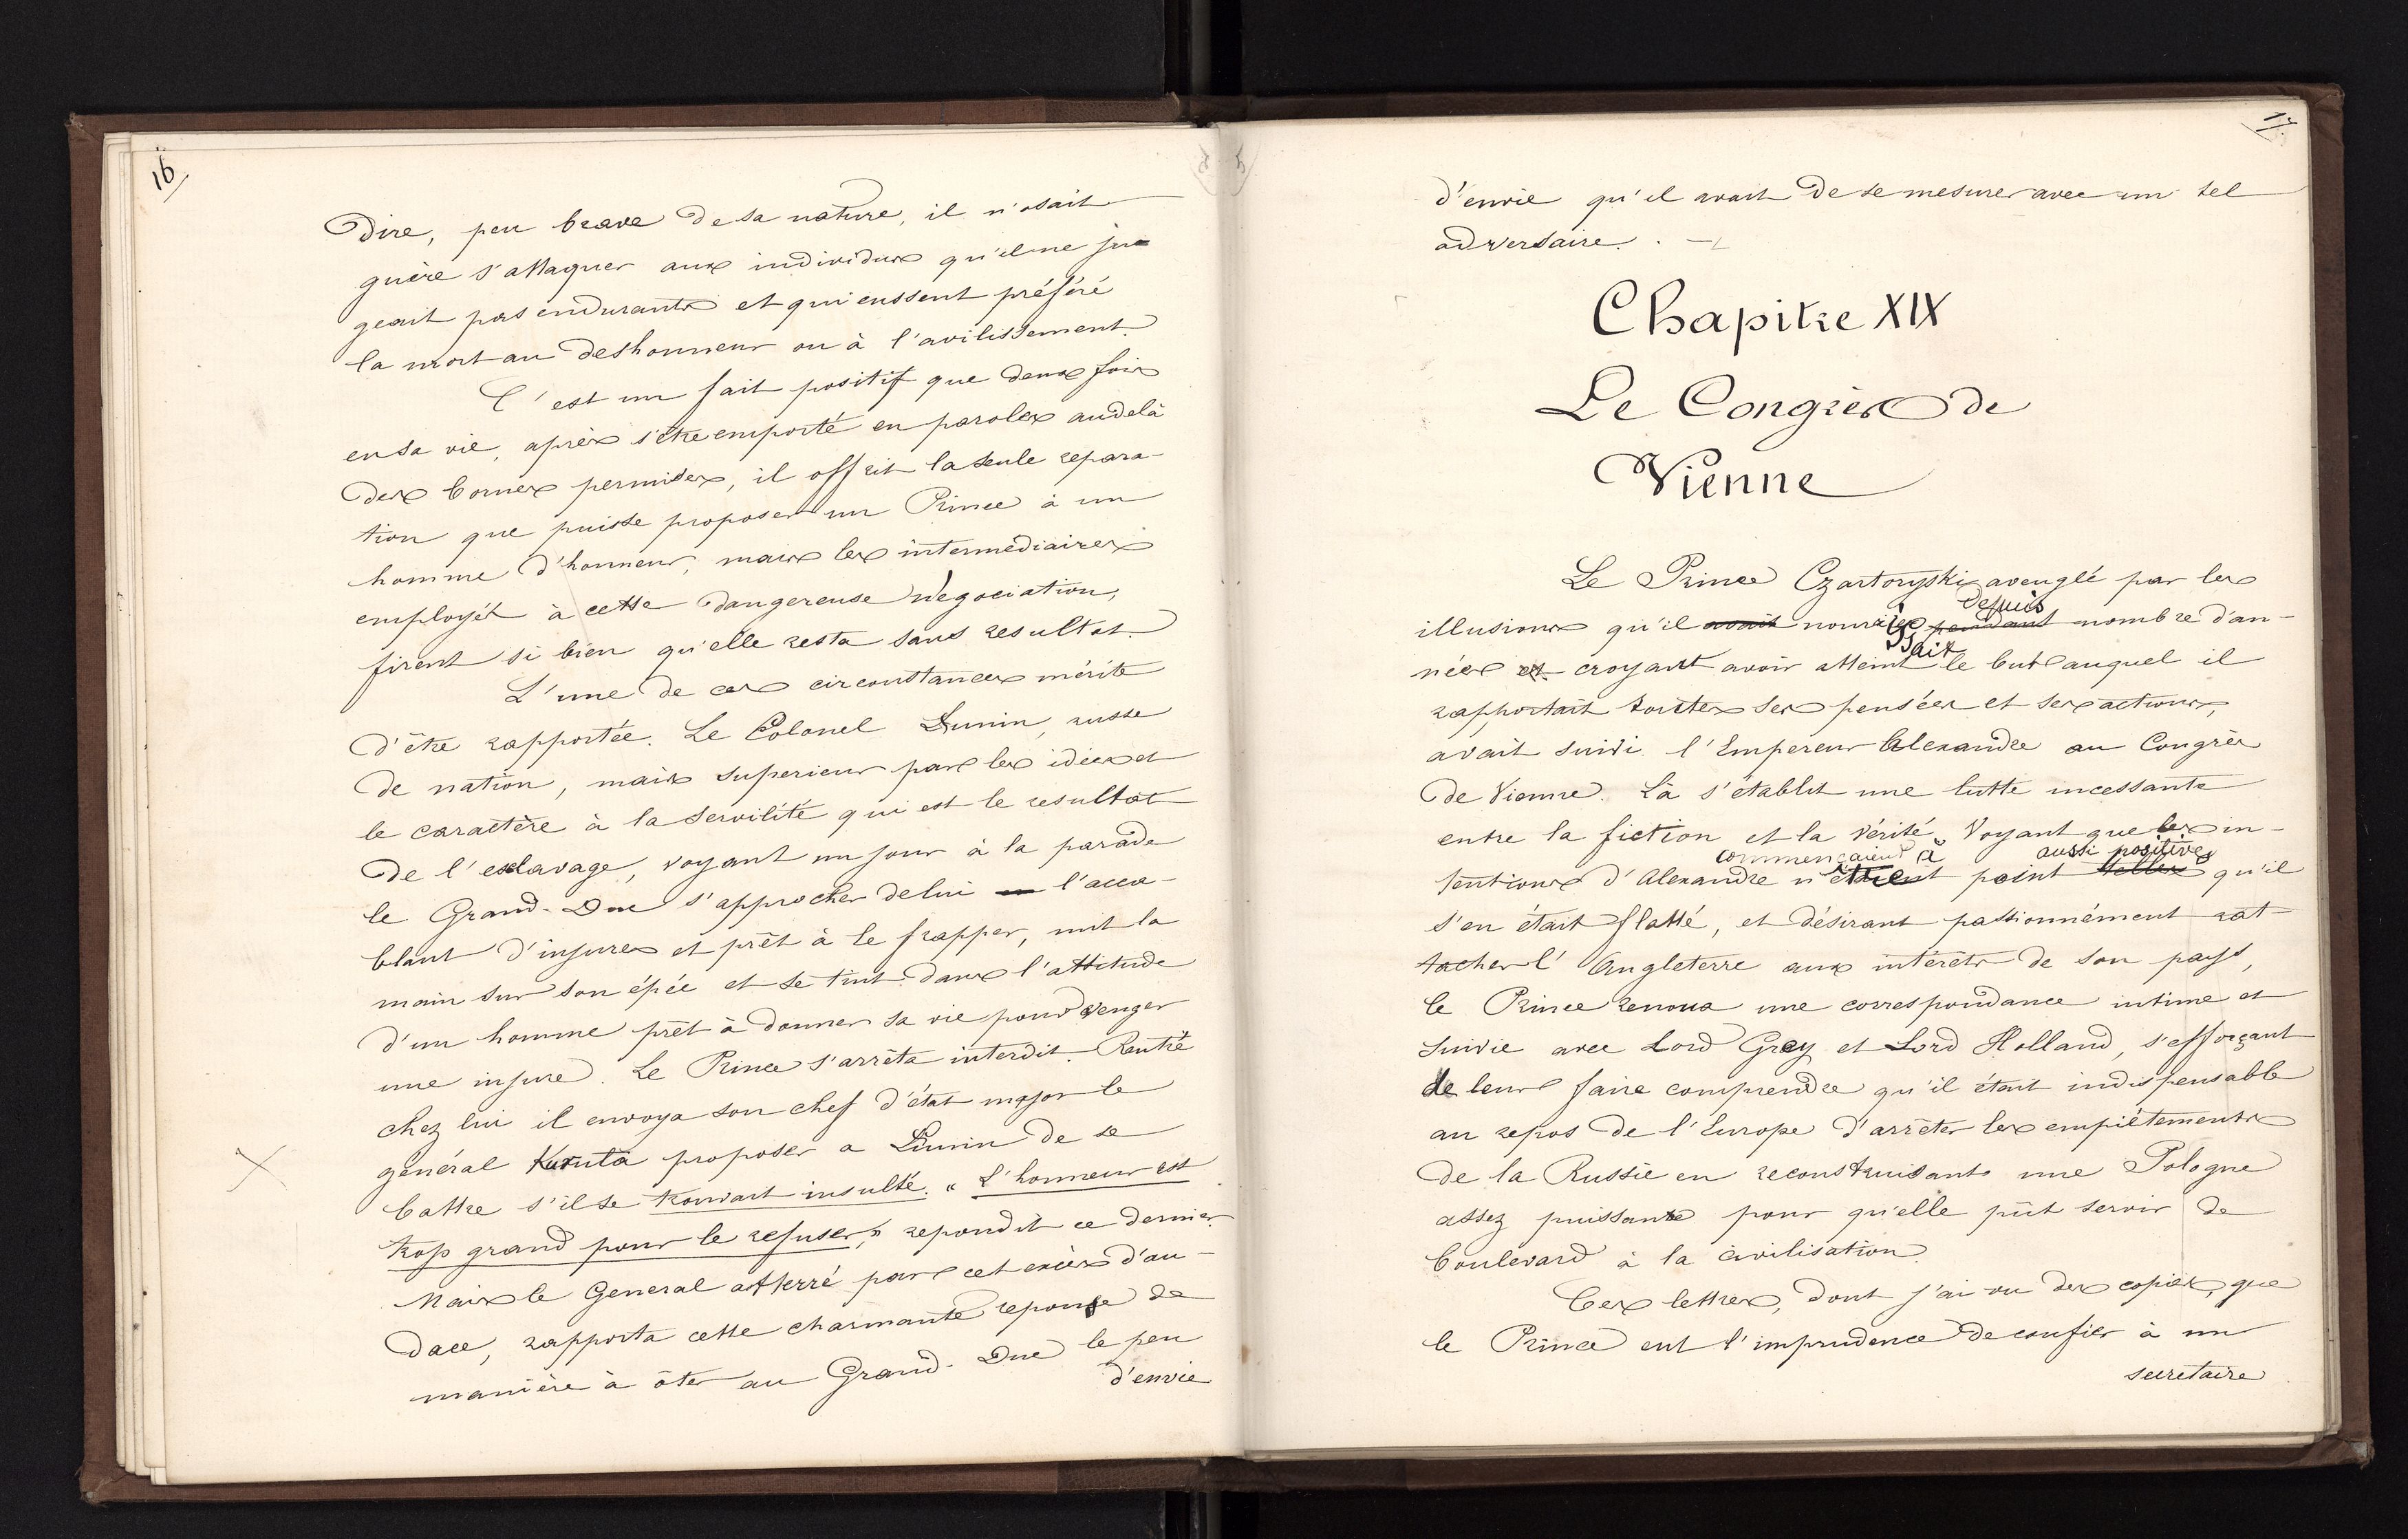 16
Dire, peu brave de sa nature, il n'osait
guère s'attaquer aux individus qu'il ne ju-
geait pas endurants et qui eussent préféré
la mort au deshonneur ou à l'avilissement.
C'est un fait positif que deux fois
en sa vie, après s'être emporté en paroles audelà
des bornes permises, il offrit la seule repara-
tion que puisse proposer un Prince à un
homme d'honneur, mais les intermédiaires
employés à cette dangereuse négociation,
firent si bien qu'elle resta sans resultat.
L'une de ces circonstances mérite
d'être rapportée. Le Colonel Lunin, russe
de nation, mais superieur par les idées et
le caractère à la servilité qui est le resultat
de l'esclavage, voyant un jour à la parade
le Grand-Duc s'approcher de lui l'acca-
blant d'injures et prêt à le frapper, mit la
main sur son épée et se tint dans l'attitude
d'un homme prêt à donner sa vie pour venger
une injure. Le Prince s'arrêta interdit. Rentré
chez lui il envoya son chef d'état major le
général Kuruta proposer a Lunin de se
battre s'il se trouvait insulté. "L'honneur est
trop grand pour le refuser," repondit ce dernier.
Mais le General atterré par cet excès d'au-
dace, rapporta cette charmante reponse de
manière à ôter au Grand-Duc le peu
d'envie
17
d'envie qu'il avait de se mesurer avec un tel
adversaire. —
Chapitre XIX
Le Congrès de
Vienne
Le Prince Czartoryski aveuglé par les
depuis
illusions qu'il avait nourries pendant nombre d'an-
ssait
nées et croyant avoir atteint le but auquel il
rapportait toutes ses pensées et ses actions,
avait suivi l'Empereur Alexandre au Congrès
de Vienne. Là s'établit une lutte incessante
entre la fiction et la vérité. Voyant que les in-
commençaient à aussi positives
tentions d'Alexandre n'étaient point telles qu'il
s'en était flatté, et désirant passionnément rat-
tacher l'Angleterre aux intérêts de son pays,
le Prince renoua une correspondance intime et
suivie avec Lord Grey et Lord Holland, s'efforçant
de leur faire comprendre qu'il était indispensable
au repos de l'Europe d'arrêter les empiètements
de la Russie en reconstruisant une Pologne
assez puissante pour qu'elle pût servir de
boulevard à la civilisation.
Ces lettres, dont j'ai vu des copies, que
le Prince eut l'imprudence de confier à un
secretaire